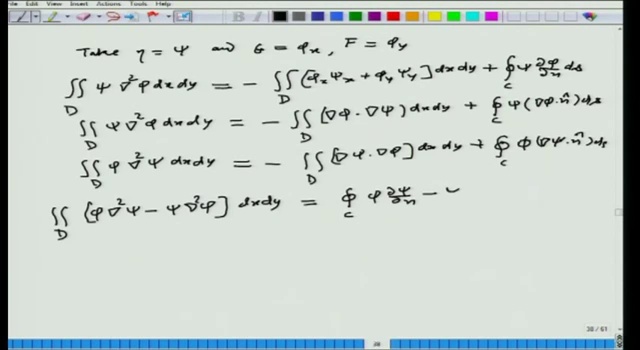 File Edit View Insert Actions Tools Help
Take η = ψ and G = φₓ, F = φᵧ
∬_D ψ ∇²φ dxdy = − ∬_D [φₓψₓ + φᵧψᵧ] dxdy + ∮_c ψ ∂φ/∂n ds
∬_D ψ ∇²φ dxdy = − ∬_D (∇φ · ∇ψ) dxdy + ∮_c ψ (∇φ · n̂) ds
∬_D φ ∇²ψ dxdy = − ∬_D [∇ψ · ∇φ] dxdy + ∮_c φ (∇ψ · n̂) ds
∬_D [φ∇²ψ − ψ∇²φ] dxdy = ∮_c φ ∂ψ/∂n −